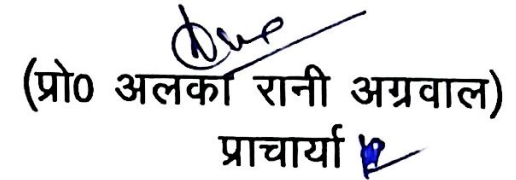 (प्रो0 अलका रानी अग्रवाल)
प्राचार्या